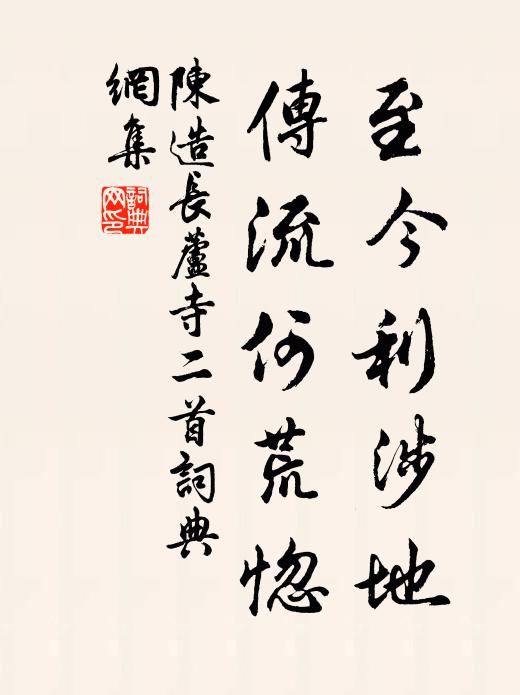 至今利涉地
傳流何荒惚
陳造長蘆寺二首詞典
網集
詞典網印